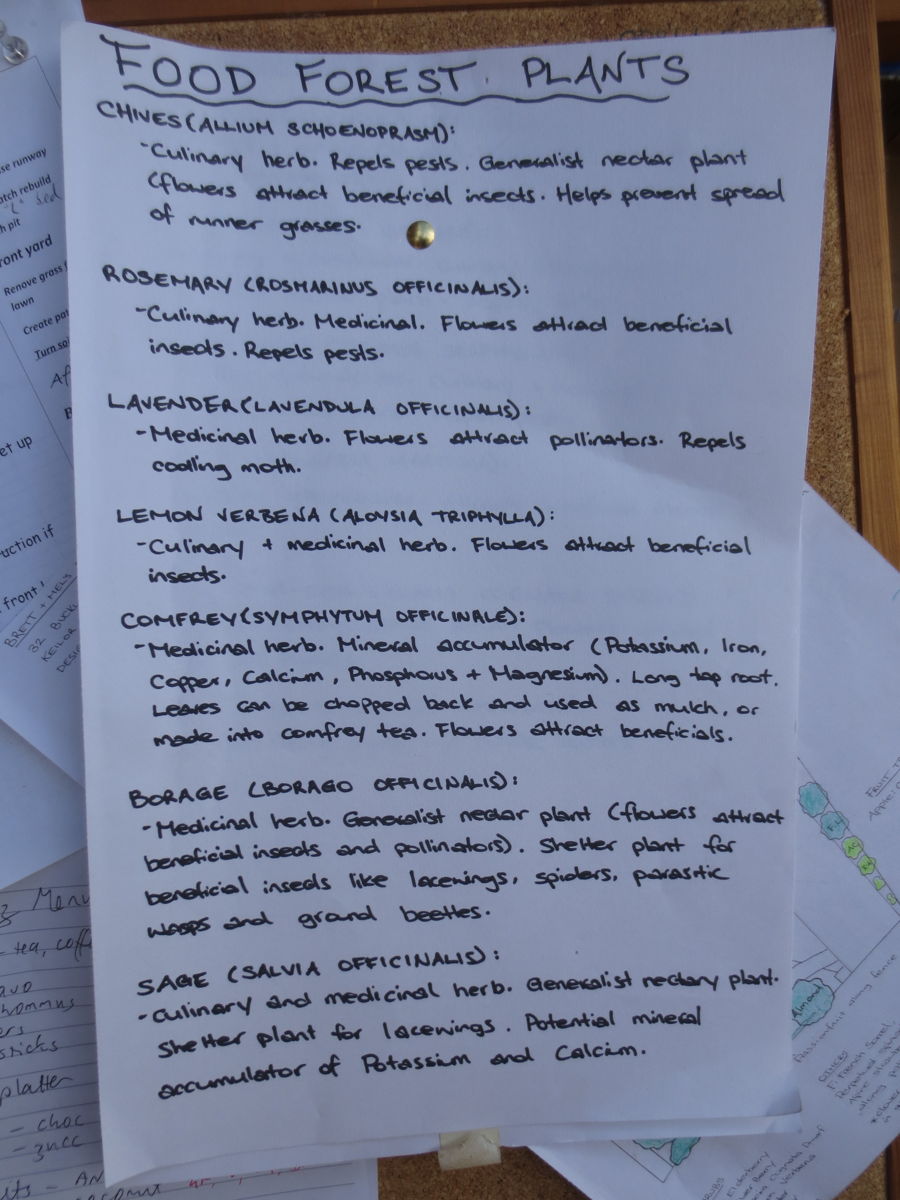 FOOD FOREST PLANTS
CHIVES (ALLIUM SCHOENOPRASM):
-Culinary herb. Repels pests. Generalist nectar plant
(flowers attract beneficial insects. Helps prevent spread
of runner grasses.
ROSEMARY (ROSMARINUS OFFICINALIS):
-Culinary herb. Medicinal. Flowers attract beneficial
insects. Repels pests.
LAVENDER (LAVENDULA OFFICINALIS):
-Medicinal herb. Flowers attract pollinators. Repels
codling moth.
LEMON VERBENA (ALOYSIA TRIPHYLLA):
-Culinary + medicinal herb. Flowers attract beneficial
insects.
COMFREY (SYMPHYTUM OFFICINALE):
-Medicinal herb. Mineral accumulator (Potassium, Iron,
Copper, Calcium, Phosphorus + Magnesium). Long tap root.
Leaves can be chopped back and used as mulch, or
made into comfrey tea. Flowers attract beneficials.
BORAGE (BORAGO OFFICINALIS):
-Medicinal herb. Generalist nectar plant (flowers attract
beneficial insects and pollinators). Shelter plant for
beneficial insects like lacewings, spiders, parasitic
wasps and ground beetles.
SAGE (SALVIA OFFICINALIS):
-Culinary and medicinal herb. Generalist nectary plant.
Shelter plant for lacewings. Potential mineral
accumulator of Potassium and Calcium.
runway
rebuild
pit
front yard
Remove grass
lawn
Create
Turn
et up
if
front
BRETT + MELS
32
KEILOR
Menu
tea,
platter
- choc
- zucc
Almond
Passionfruit along fence